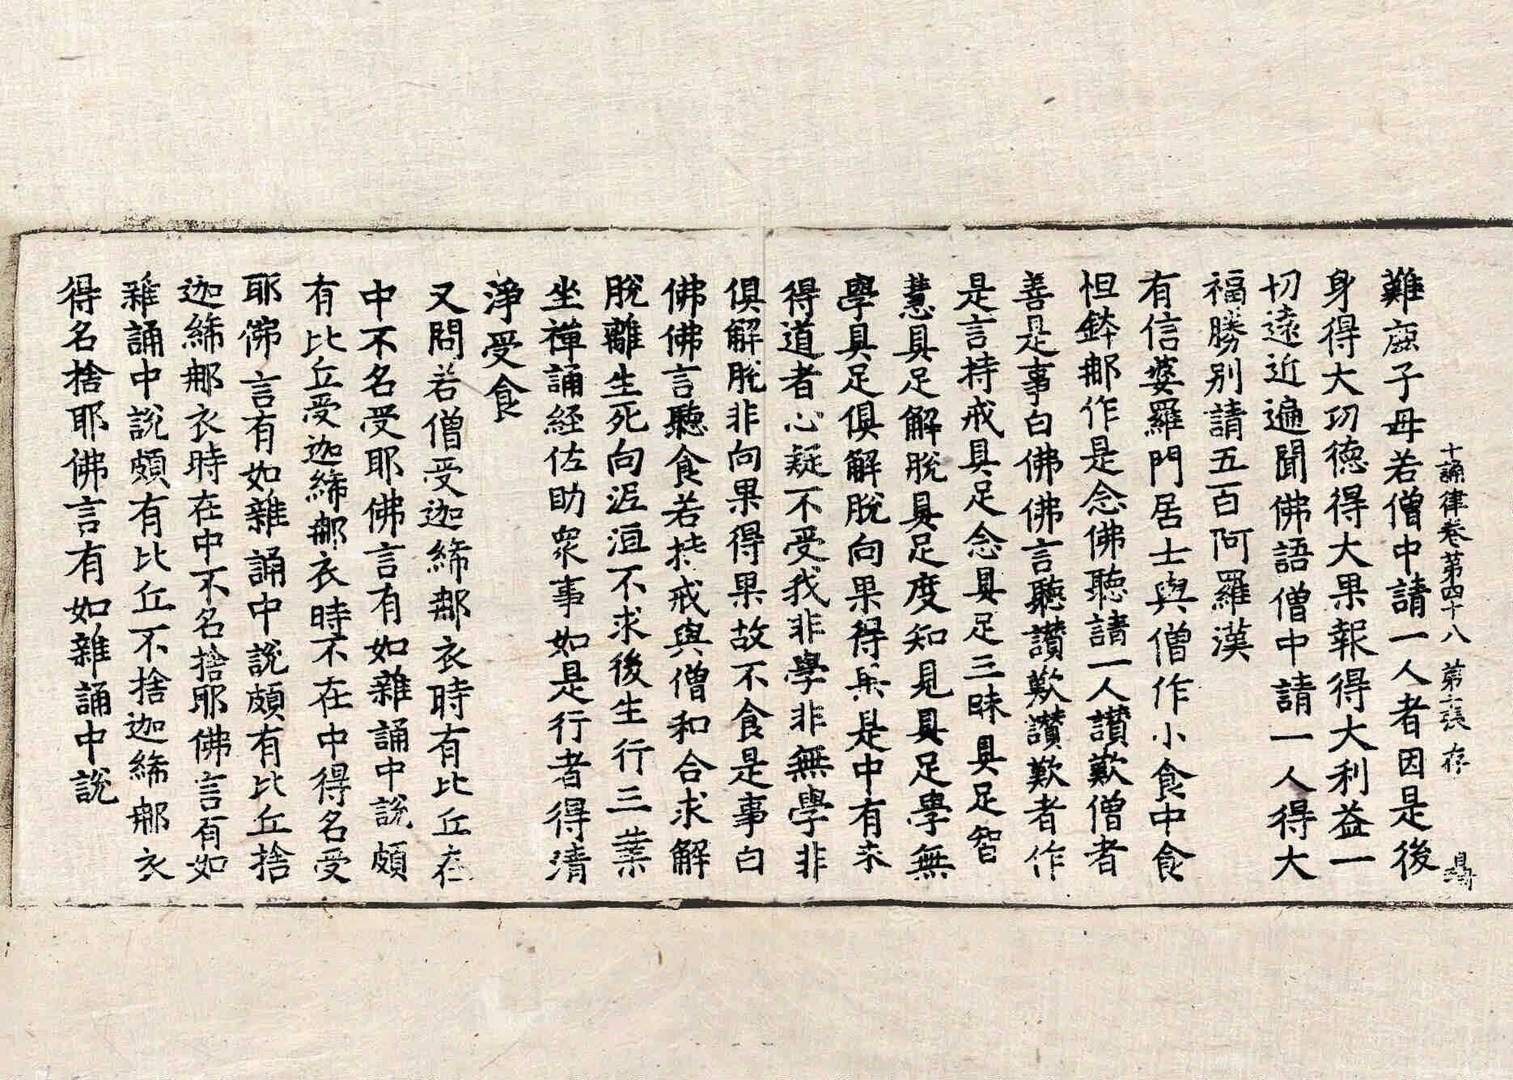 十誦律卷第四十八 第二張 存
難鹿子母若僧中請一人者因是後
身得大功德得大果報得大利益一
切遠近遍聞佛語僧中請一人得大
福勝別請五百阿羅漢
有信婆羅門居士與僧作小食中食
怛鉢那作是念佛聽請一人讃歎僧者
善是事白佛佛言聽讃歎讃歎者作
是言持戒具足念具足三昧具足智
慧具足解脫具足度知見具足學無
學具足俱解脫向果得果是中有未
得道者心疑不受我非學非無學非
俱解脫非向果得果故不食是事白
佛佛言聽食若持戒與僧和合求解
脫離生死向泥洹不求後生行三業
坐禪誦經佐助衆事如是行者得清
淨受食
又問若僧受迦絺那衣時有比丘在
中不名受耶佛言有如雜誦中說頗
有比丘受迦絺那衣時不在中得名受
耶佛言有如雜誦中說頗有比丘捨
迦絺那衣時在中不名捨耶佛言有如
雜誦中說頗有比丘不捨迦絺那衣
得名捨耶佛言有如雜誦中說